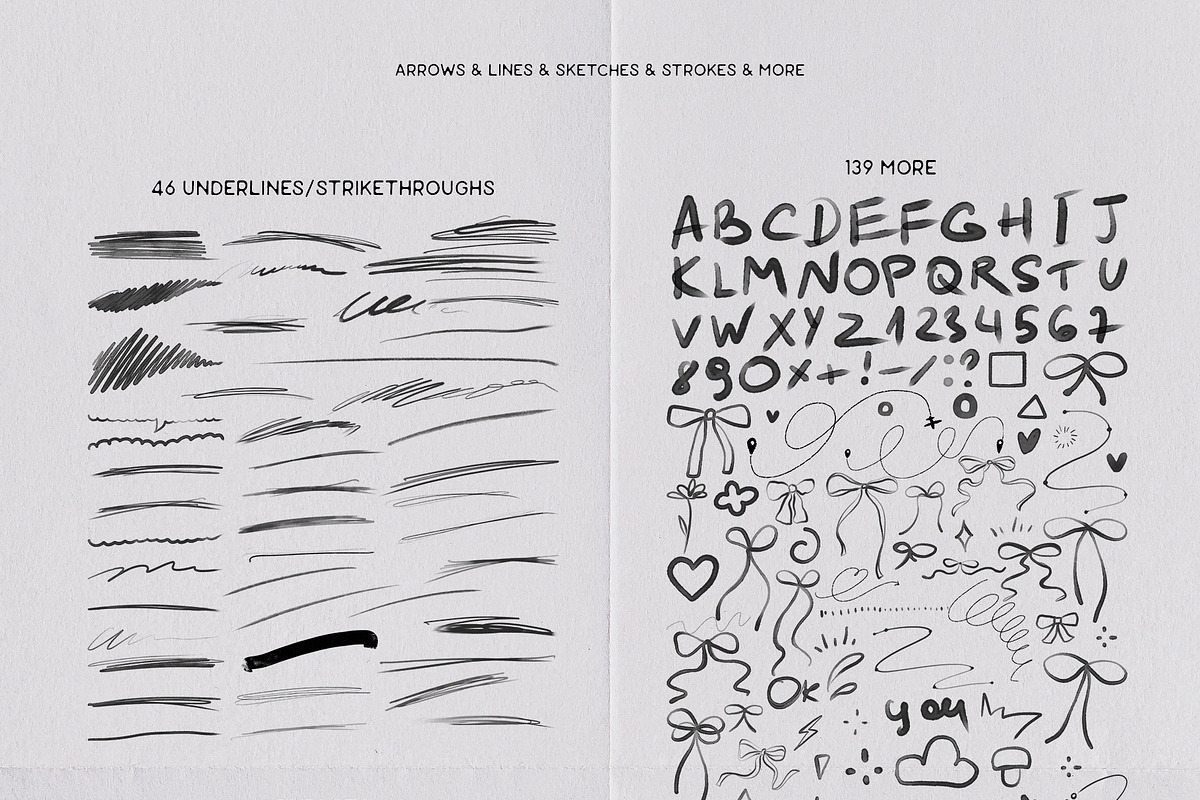 ARROWS & LINES & SKETCHES & STROKES & MORE
46 UNDERLINES/STRIKETHROUGHS
139 MORE
ABCDEFGHIJ
KLMNOPQRSTU
VWXYZ1234567
890×+!-/:?
Ok
you